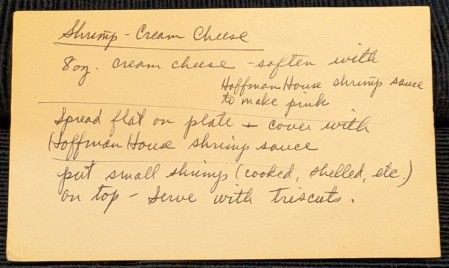 Shrimp - Cream Cheese
8 oz. cream cheese - soften with
Hoffman House shrimp sauce
to make pink
Spread flat on plate + cover with
Hoffman House shrimp sauce
put small shrimp (cooked, shelled, etc.)
on top - Serve with triscuts.